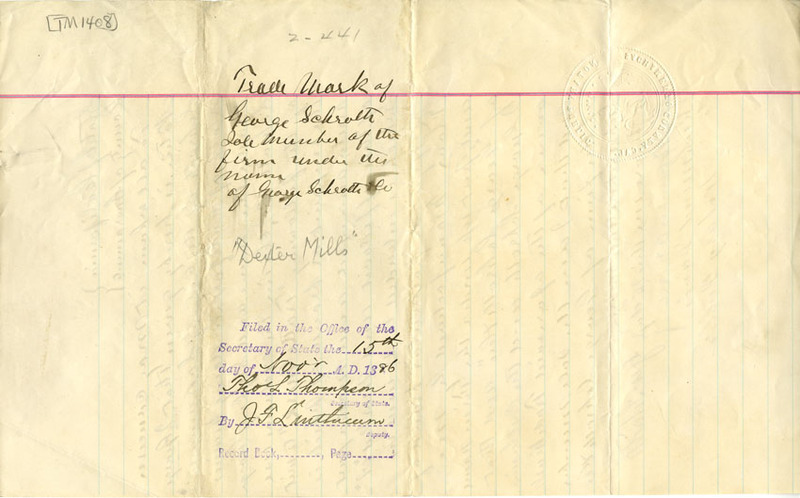 TM1408
2-441
Trade Mark of
George Schroth
Sole Member of the
firm under the
name
of George Schroth & Co
"Dexter Mills"
Filed in the Office of the
Secretary of State the 15th
day of Nov'r A. D. 1886
Thos L. Thompson
Secretary of State.
By J. F. Linthicum
Deputy.
Record Book, ........, Page ........